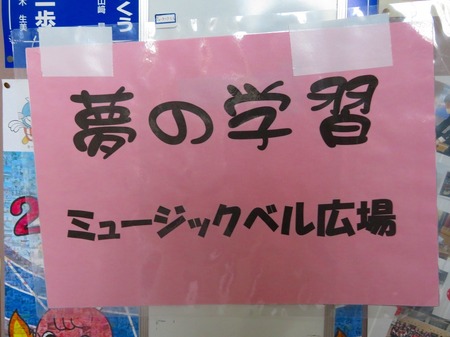 夢の学習
ミュージックベル広場